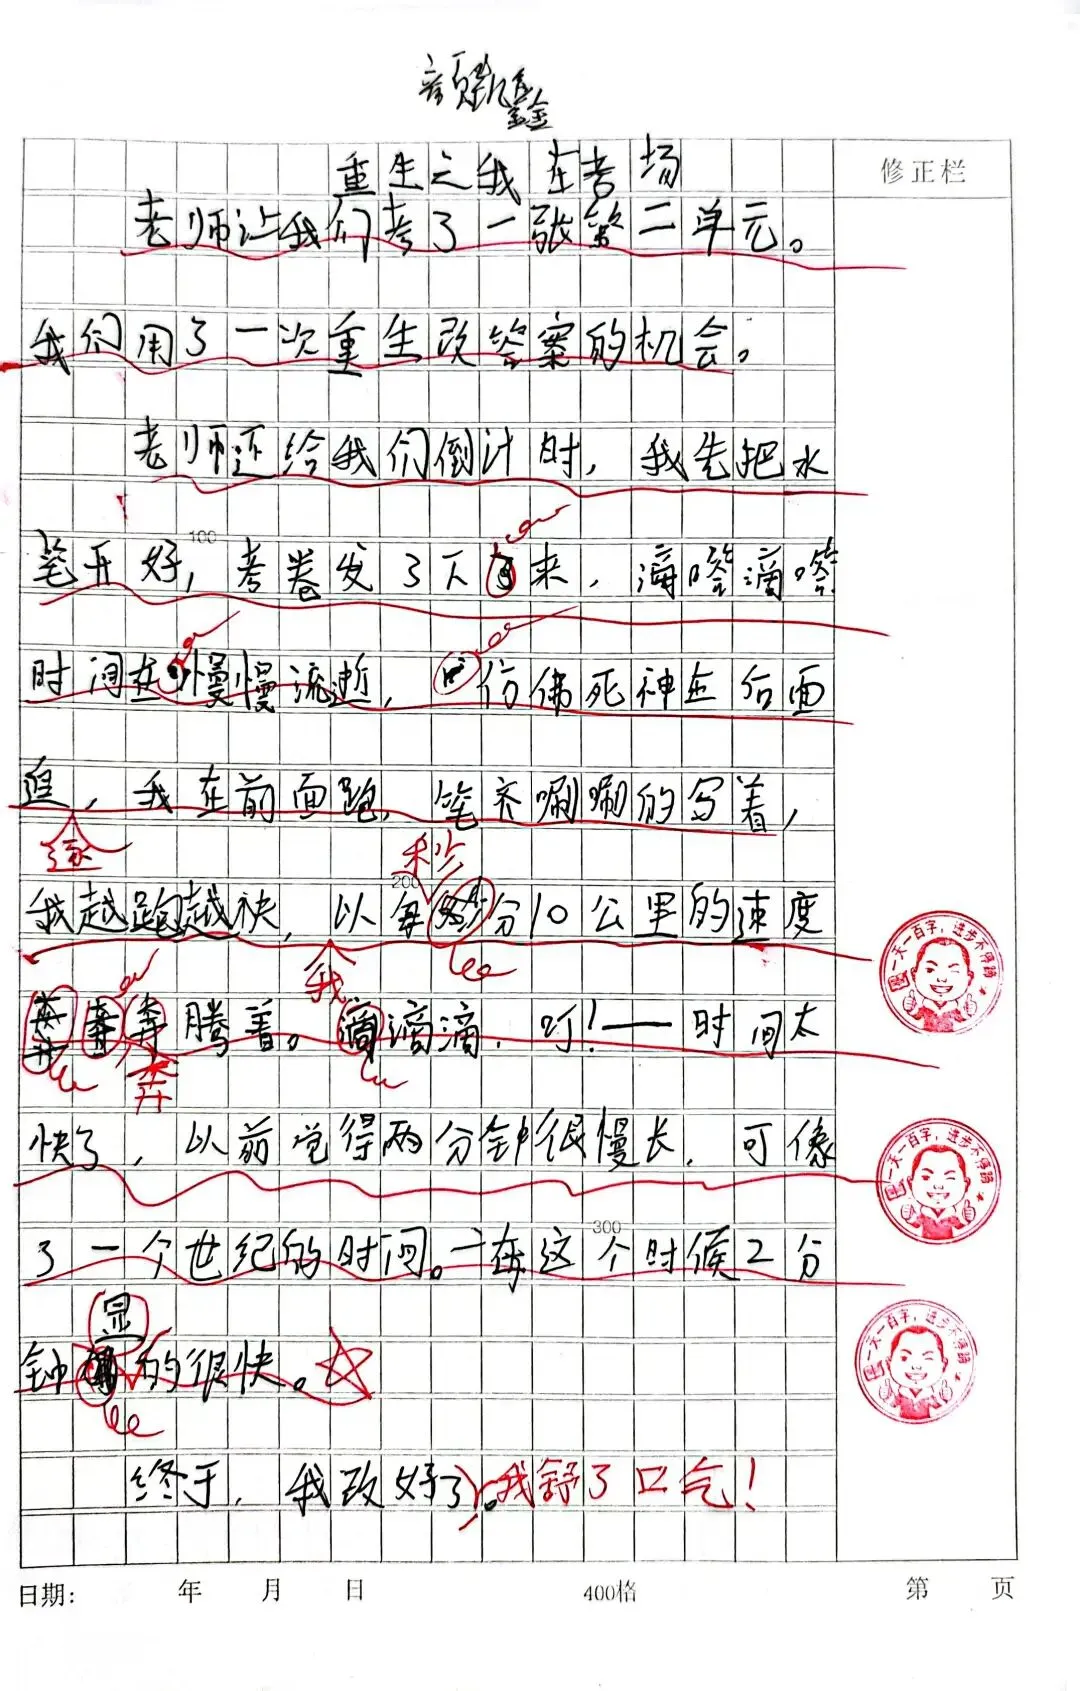 重生之我在考场
修正栏
老师让我们考了一张第二单元。
我们用了一次重生改答案的机会。
老师还给我们倒计时，我先把水
100
笔开好，考卷发了下来，滴嗒滴嗒
时间在慢慢流逝，仿佛死神在后面
追，我在前面跑，笔齐唰唰的写着，
逐
秒
200
我越跑越快，以每分10公里的速度
我
奔腾着。滴滴，叮！——时间太
奔
快了，以前觉得两分钟很慢长，可像
300
了一个世纪的时间。一在这个时候2分
显
钟的很快。
终于，我改好了。我舒了口气！
一天一百字，进步不停蹄
一天一百字，进步不停蹄
一天一百字，进步不停蹄
日期： 年 月 日 400格 第 页